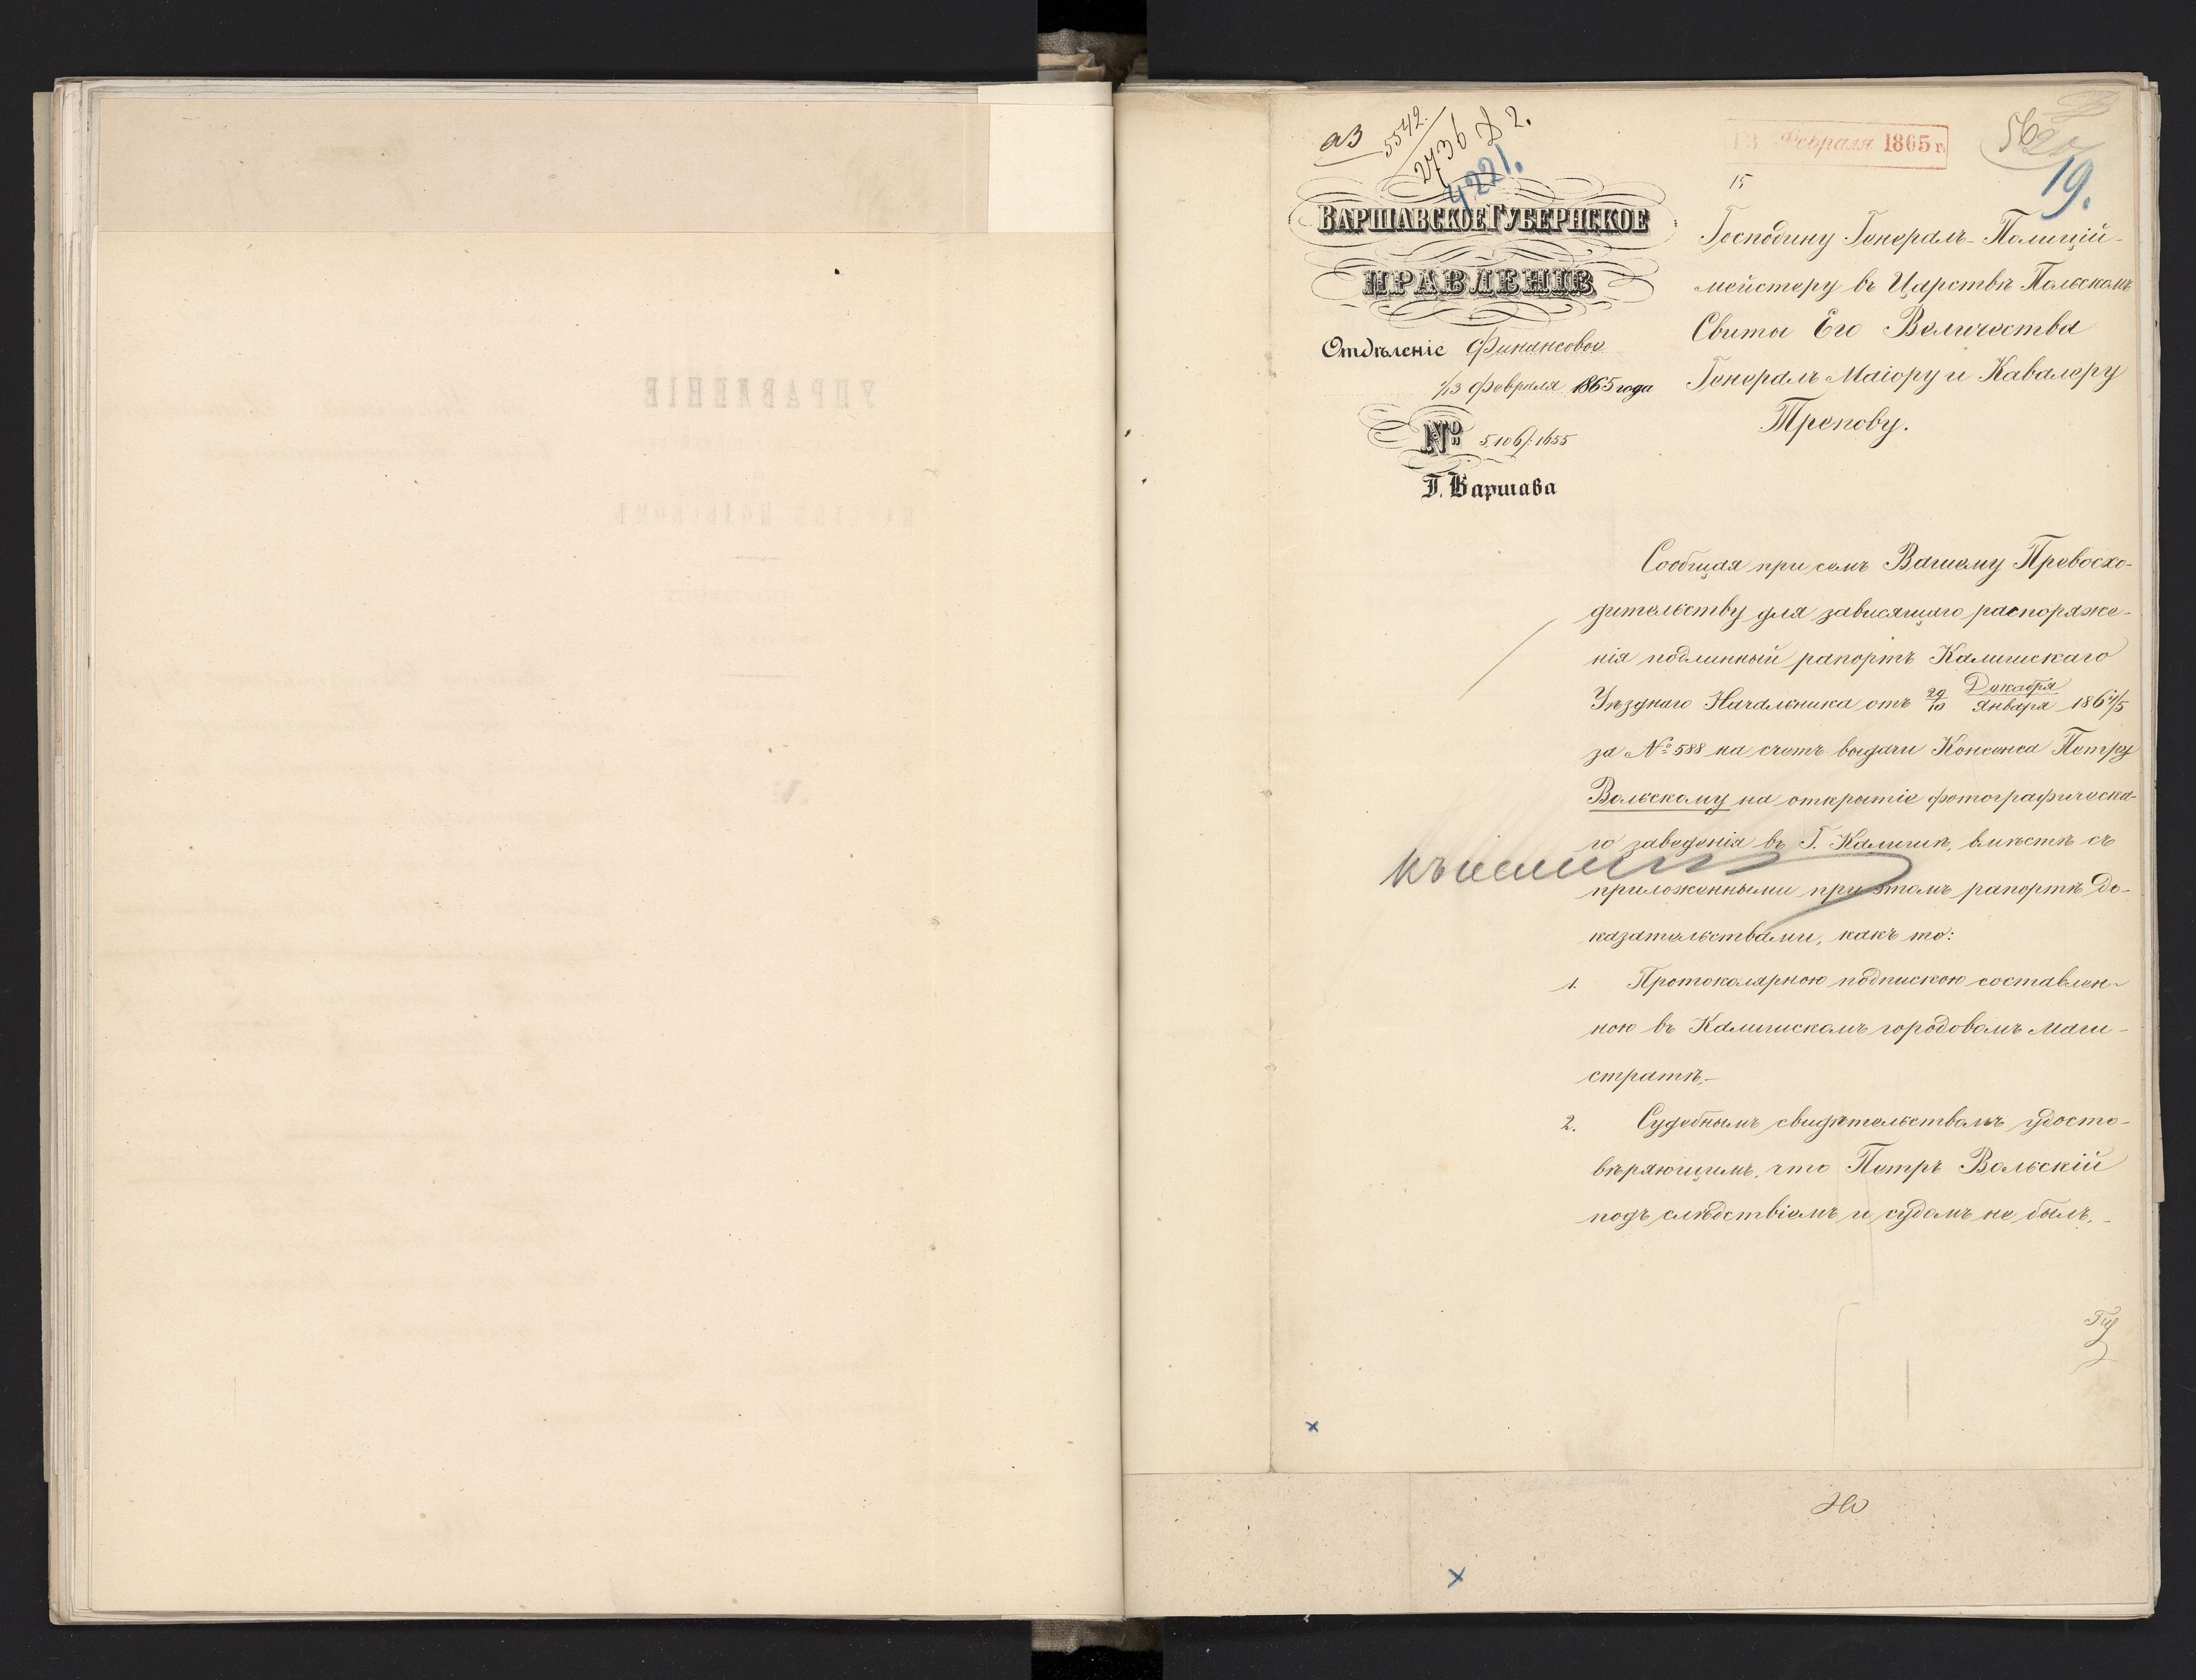 5542.
2736 Д 2.
4221.
13 Февраля 1865 г.
15
19.
ВАРШАВСКОЕ ГУБЕРНСКОЕ
ПРАВЛЕНІЕ
Отдѣленіе Финансовое
1/13 Февраля 1865 года
№ 5106/1655
Г. Варшава
Господину Генералъ-Полицій-
мейстеру въ Царствѣ Польскомъ
Свиты Его Величества
Генералъ Маіору и Кавалеру
Трепову.
Сообщая при семъ Вашему Превосхо-
дительству для зависящаго распоряже-
нія подлинный рапортъ Калишскаго
Уѣзднаго Начальника отъ 29/10 Декабря/Января 1864/5
за № 588 на счетъ выдачи Консенса Петру
Вольскому на открытіе фотографическа-
го заведенія въ Г. Калишѣ, вмѣстѣ съ
приложенными при этомъ рапортѣ до-
казательствами, какъ то:
1. Протоколярною подпискою составлен-
ною въ Калишскомъ городовомъ Маги-
стратѣ,-
2. Судебнымъ свидѣтельствомъ удосто-
вѣряющимъ, что Петръ Вольскій
подъ слѣдствіемъ и судомъ не былъ.-